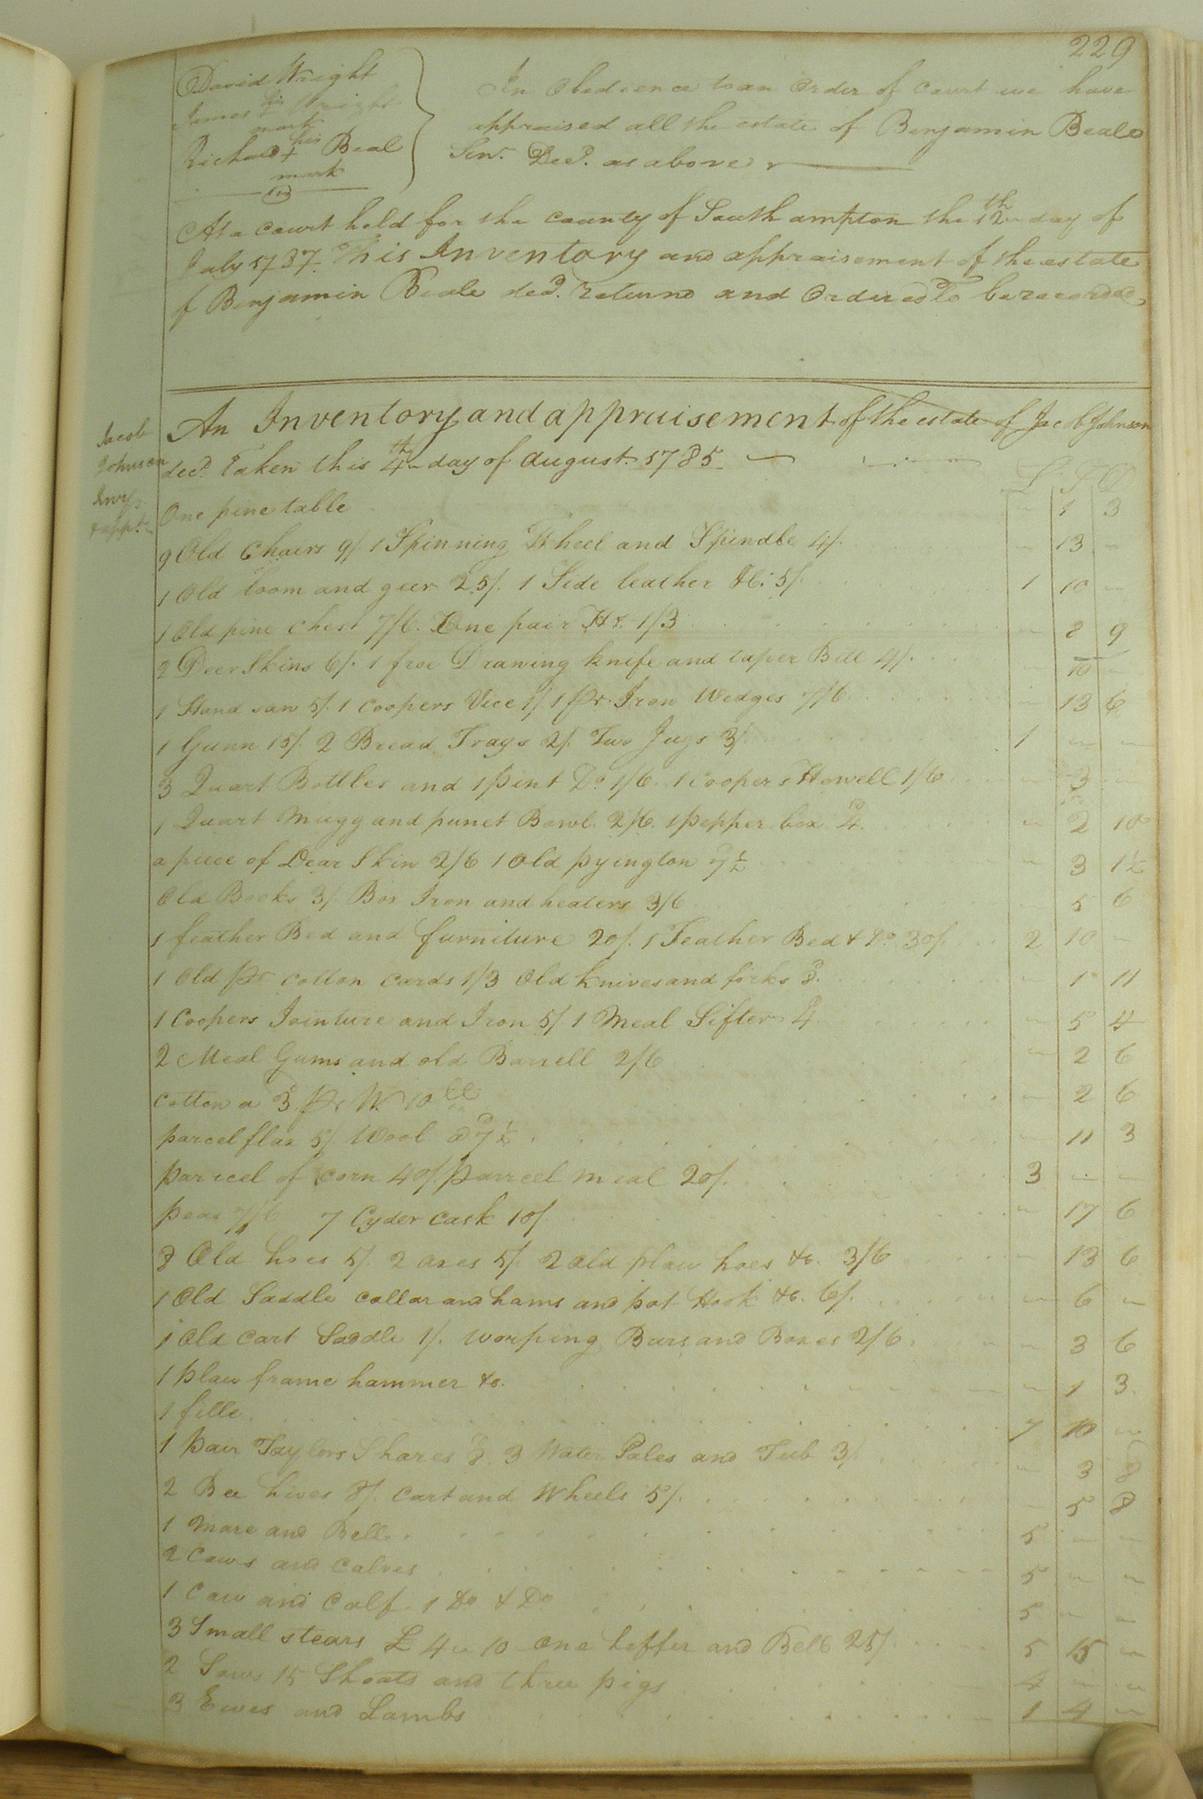 229
David Wright
James his Wright
mark
Richard + his Beal
mark
In Obedience to an Order of Court we have
appraised all the estate of Benjamin Beale
Senr. Decd. as above
At a Court held for the County of Southampton the 12th day of
July 1787. This Inventory and appraisement of the estate
of Benjamin Beale decd. Returned and Ordered To be recorded
Jacob
Johnson
Invy.
An Inventory and appraisement of the estate of Jacob Johnson
decd. Taken this 4th day of August. 1785
L S D
One pine table - 1 3
9 Old Chairs 9/ 1 Spinning Wheel and Spindle 4/. - 13 -
1 Old loom and geer 25/. 1 Side leather &c. 5/. 1 10 -
1 Old pine Chest 7/6. One pair 1/3 - 8 9
2 Deer Skins 6/. 1 froe Drawing knife and taper Bitt 4/. - 10 -
1 Hand saw 5/. 1 Coopers Vice 1/. 1 pr. Iron Wedges 7/6 - 13 6
1 Gunn 15/. 2 Bread Trays 2/. Two Jugs 3/. 1 - -
3 Quart Bottles and 1 pint Do. 1/6. 1 Coopers Howell 1/6 - 3 -
1 Quart Mugg and punct Bowl. 2/6. 1 pepper box 4d. - 2 10
a piece of Dear Skin 2/6 1 Old pyington 7½ - 3 1½
Old Books 3/ Box Iron and heaters 3/6 5 6
1 feather Bed and furniture 20/. 1 Feather Bed & Do. 30/. 2 10 -
1 Old pr. Cotton Cards 1/3 Old knives and forks 8d. - 1 11
1 Coopers Jointure and Iron 5/ 1 Meal Sifter 4d - 5 4
2 Meal Gums and old Barrell 2/6 - 2 6
Cotton a 3d pr. W. 10 - 2 6
parcel flax 5/ Wool @ 7½ - 11 3
parcel of corn 40/. parcel meal 20/. 3 - -
peas 7/6 7 Cyder Cask 10/ - 17 6
8 Old hoes 5/. 2 axes 5/. 2 old plaw hoes &c. 3/6 - 13 6
1 Old Saddle collar and hams and pot Hook &c. 6/. - 6 -
1 Old Cart Saddle 1/. Worping Bars and Boxes 2/6. - 3 6
1 plaw frame hammer &c. - 1 3
1 fille 7 10 -
1 pair Taylors Shares 8d. 3 Water Pales and Tub 3/. - 3 8
2 Bee hives 8/. Cart and Wheels 5/. - 5 8
1 Mare and Bell. 5 - -
2 Cows and Calves 5 - -
1 Caw and Calf. 1 Do. & Do. 5 - -
3 Small stears £ 4 10 One heffer and Bell 25/. 5 15 -
2 Sows 15 Shoats and three pigs 4 - -
3 Ewes and Lambs 1 4 -